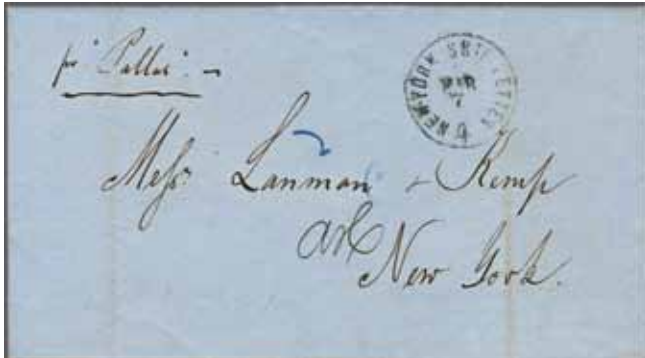 pr "Pallas". –
NEW YORK SHIP LETTER
MAR
7
6
Messrs Lanman & Kemp
New York.